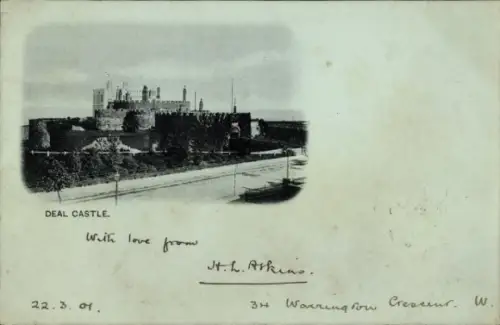 DEAL CASTLE.
With love from
H. L. Atkins.
22.3.01. 34 Warrington Crescent. W.